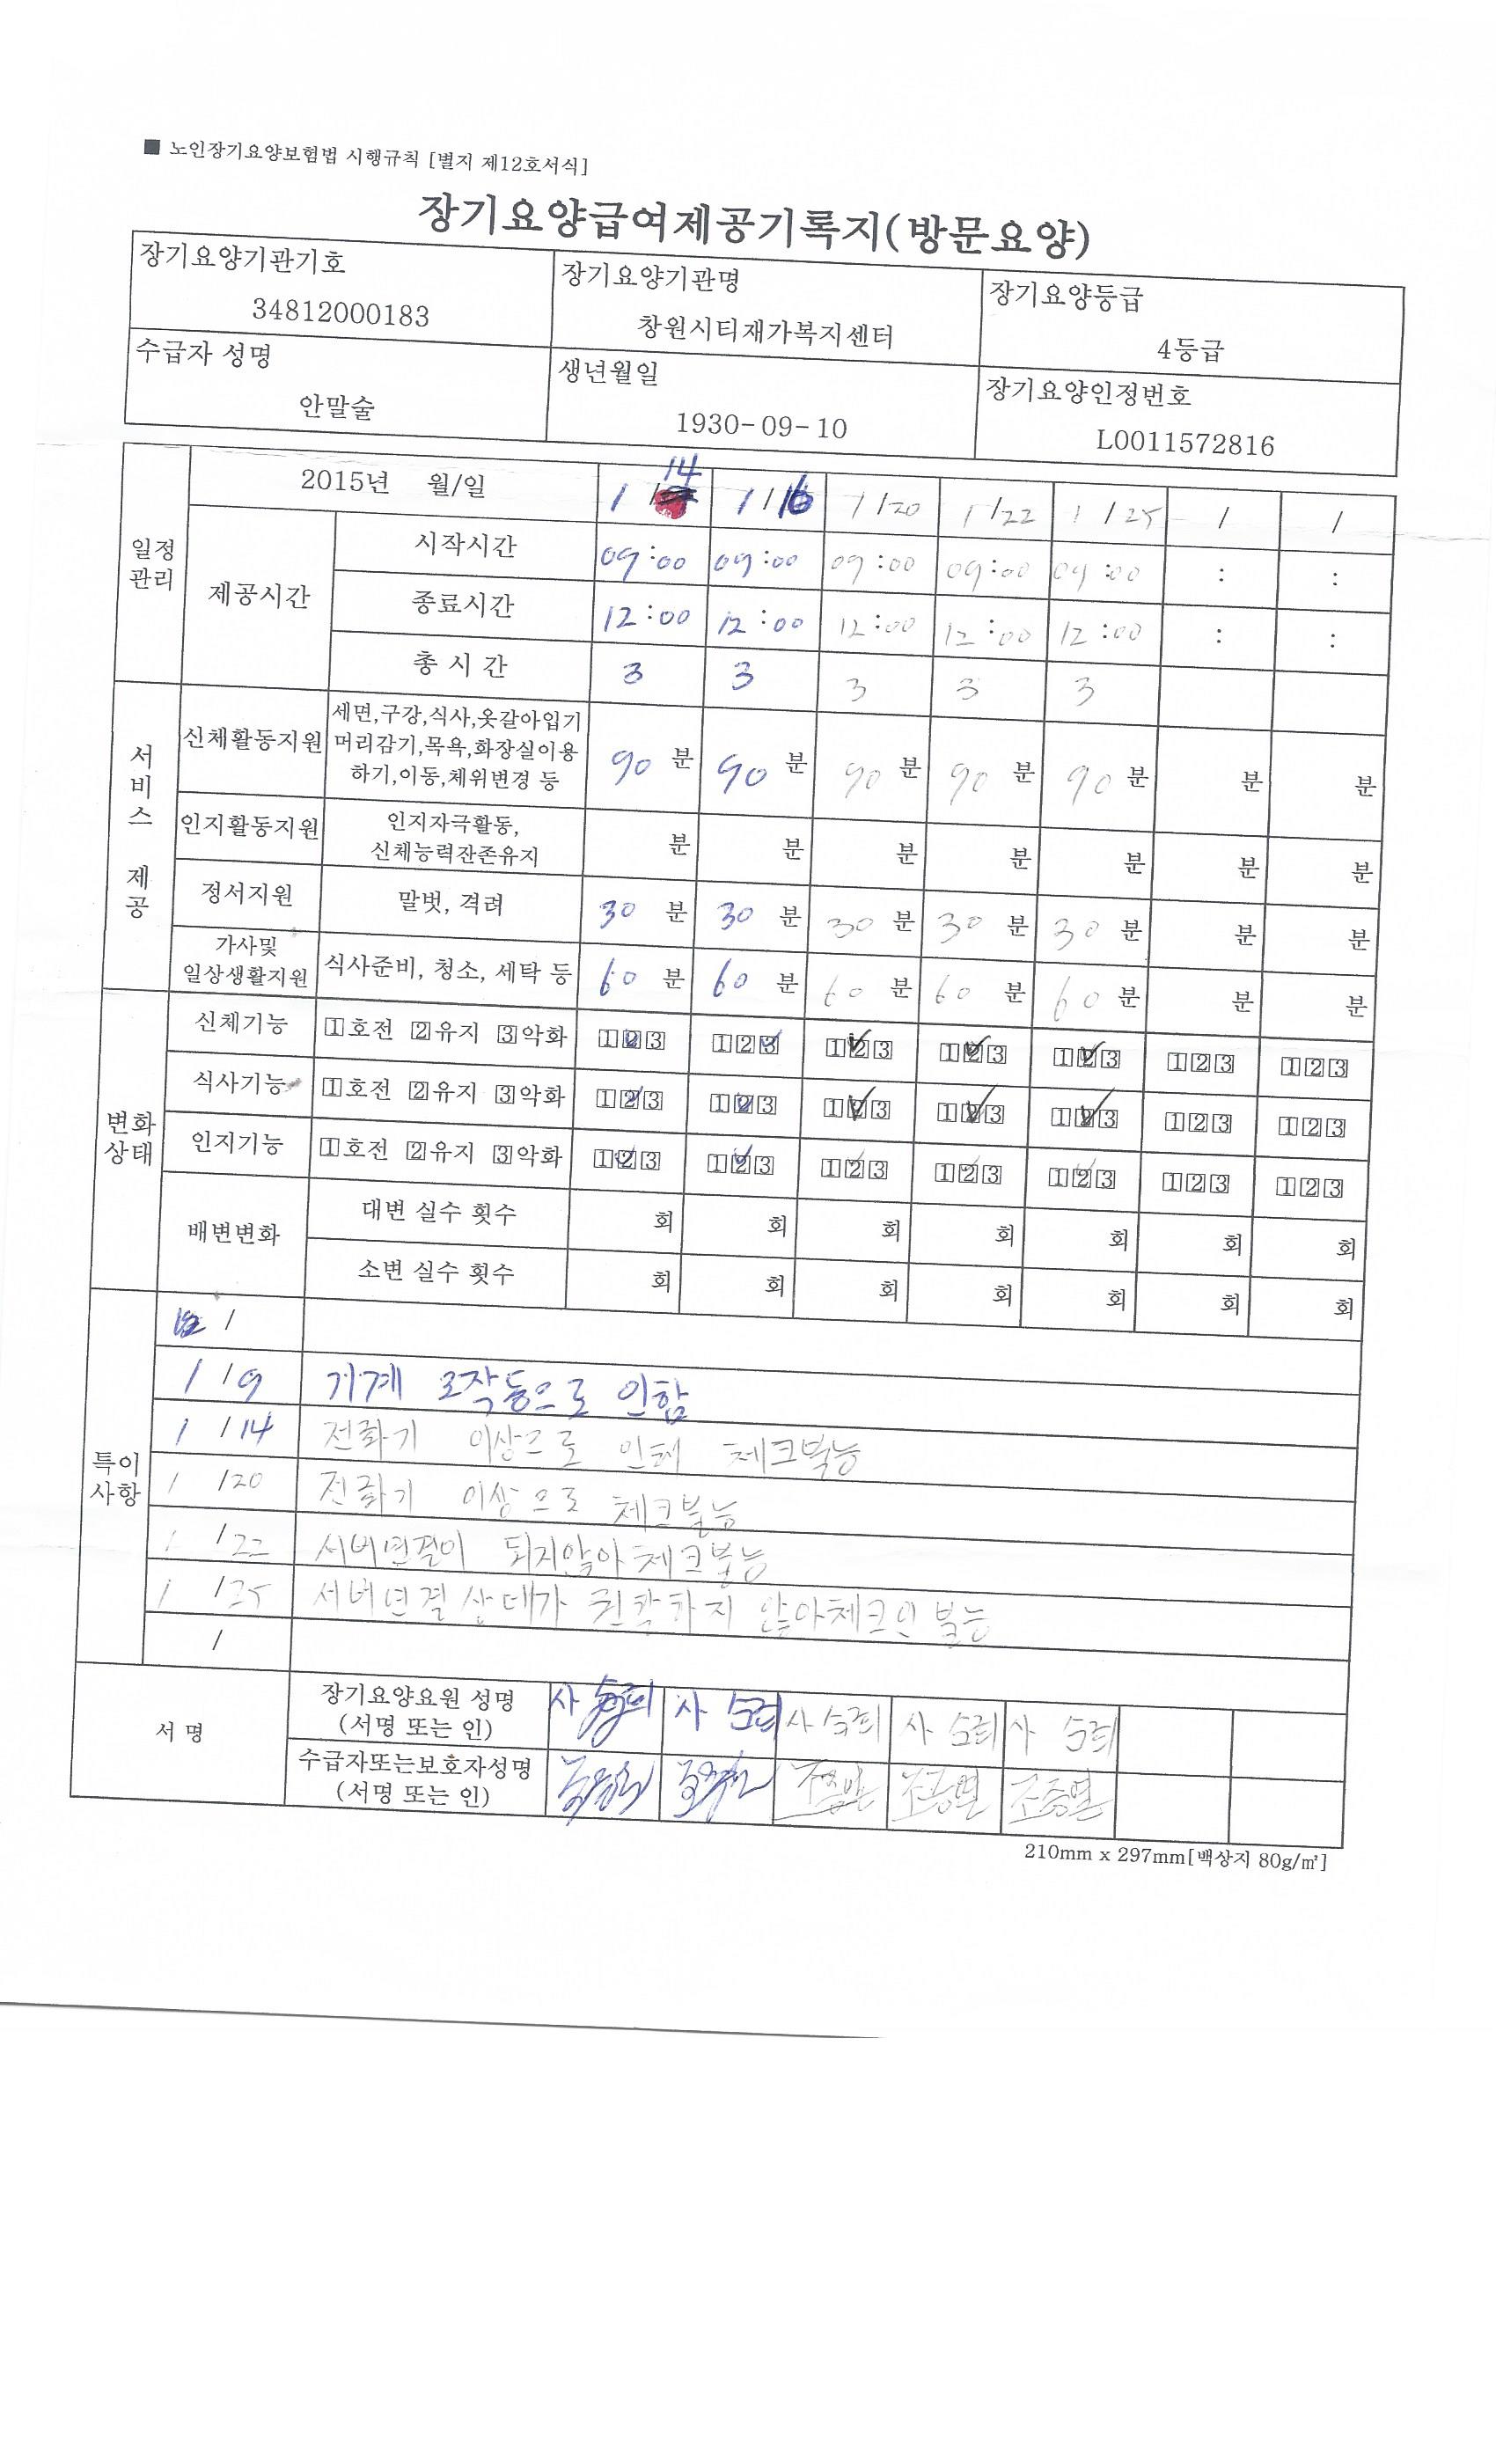 ■ 노인장기요양보험법 시행규칙 [별지 제12호서식]
장기요양급여제공기록지(방문요양)
장기요양기관기호 장기요양기관명 장기요양등급
34812000183 창원시티재가복지센터 4등급
수급자 성명 생년월일 장기요양인정번호
안말술 1930-09-10 L0011572816
일정관리 2015년 월/일 1/14 1/16 1/20 1/22 1/25 / /
제공시간 시작시간 09:00 09:00 09:00 09:00 09:00 : :
종료시간 12:00 12:00 12:00 12:00 12:00 : :
총 시 간 3 3 3 3 3
서비스 제공
신체활동지원 세면,구강,식사,옷갈아입기
머리감기,목욕,화장실이용
하기,이동,체위변경 등 90 분 90 분 90 분 90 분 90 분 분 분
인지활동지원 인지자극활동,
신체능력잔존유지 분 분 분 분 분 분 분
정서지원 말벗, 격려 30 분 30 분 30 분 30 분 30 분 분 분
가사및
일상생활지원 식사준비, 청소, 세탁 등 60 분 60 분 60 분 60 분 60 분 분 분
변화상태
신체기능 1호전 2유지 3악화 123 123 123 123 123 123 123
식사기능 1호전 2유지 3악화 123 123 123 123 123 123 123
인지기능 1호전 2유지 3악화 123 123 123 123 123 123 123
배변변화 대변 실수 횟수 회 회 회 회 회 회 회
소변 실수 횟수 회 회 회 회 회 회 회
특이사항
/
1/9 기계 오작동으로 인함
1/14 전화기 이상으로 인해 체크불능
1/20 전화기 이상으로 체크불능
1/22 서버연결이 되지않아 체크불능
1/25 서버연결상태가 원활하지 않아체크인 불능
/
서 명 장기요양요원 성명
(서명 또는 인)
수급자또는보호자성명
(서명 또는 인)
210mm x 297mm[백상지 80g/㎡]